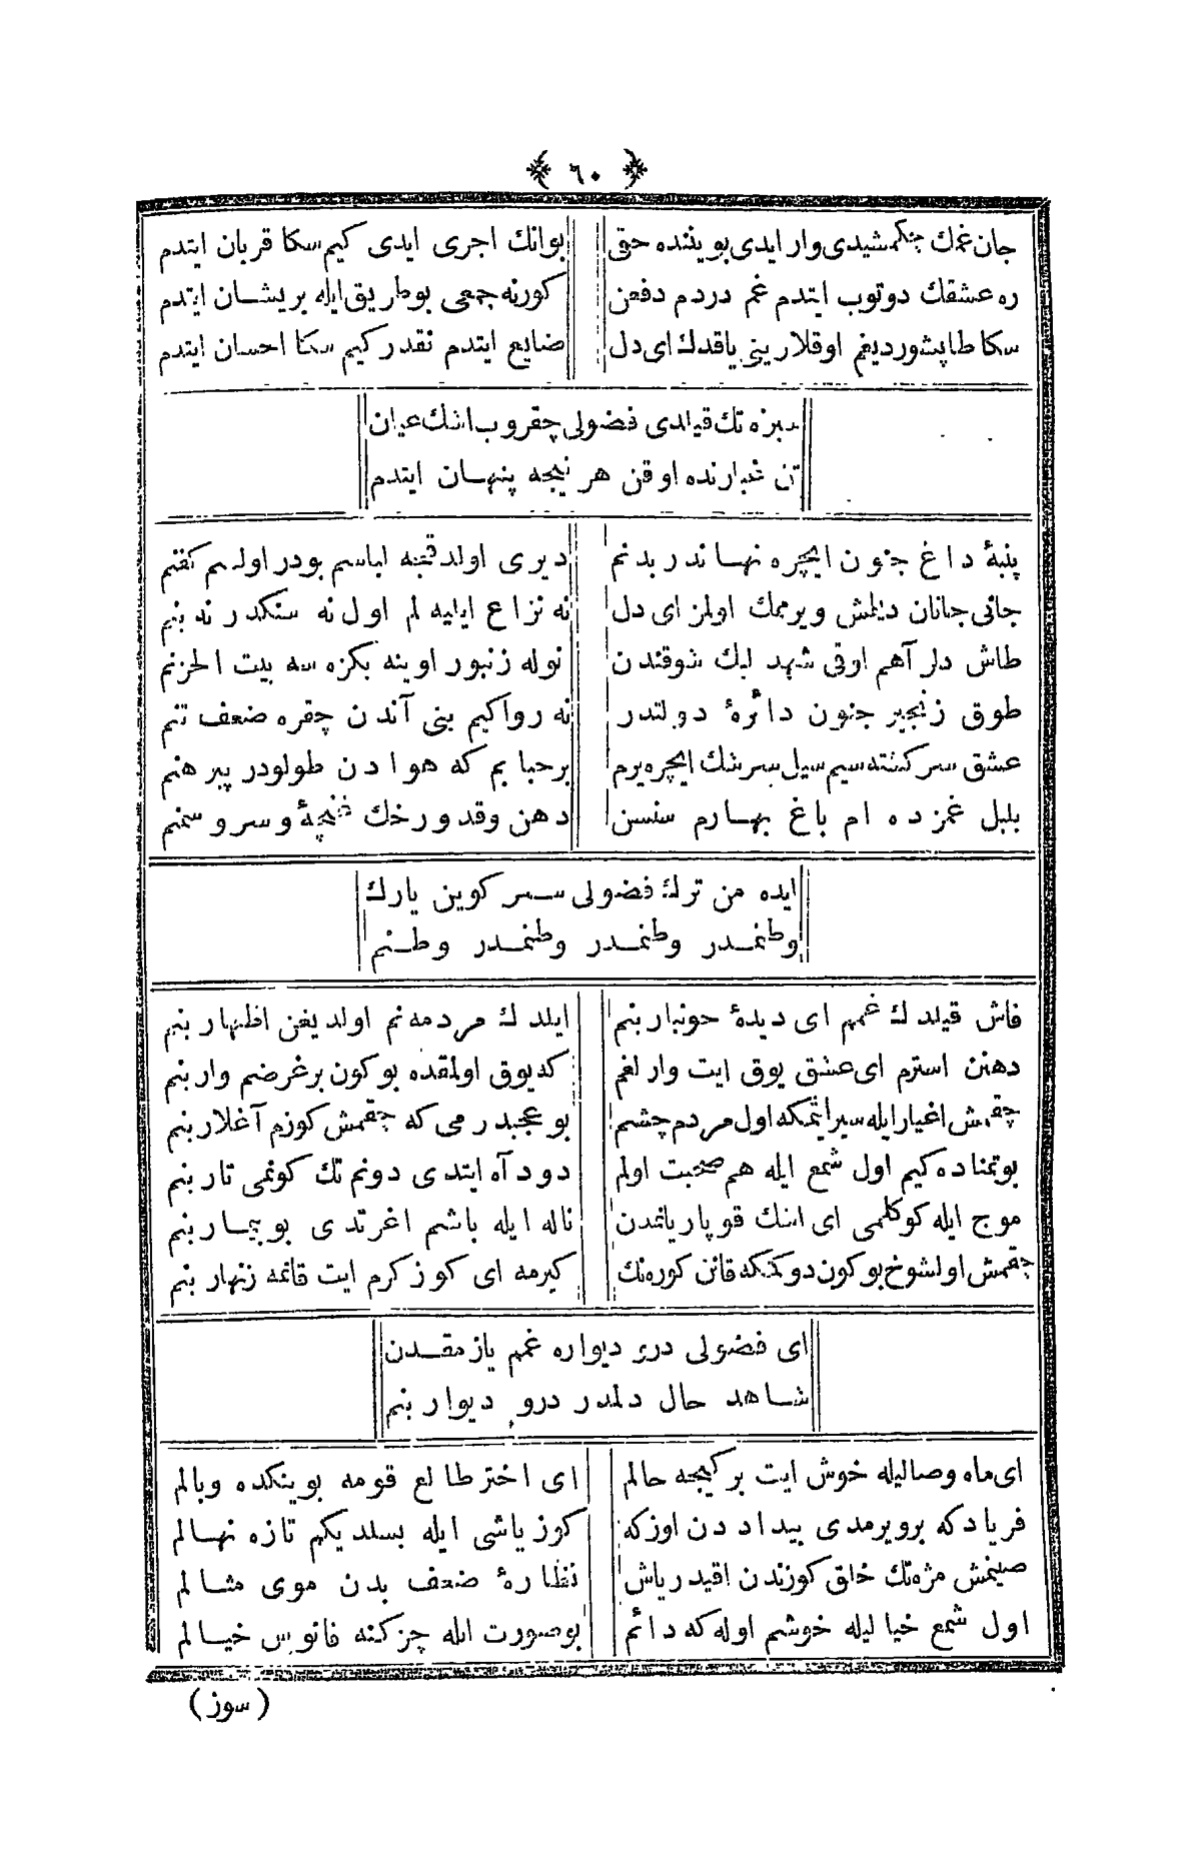 ﴿ ٦٠ ﴾
جان غمك چكمشيدى وار ايدى بويننده حقى
بوانك اجرى ايدى كيم سكا قربان ايتدم
ره عشقك دوتوب ايتدم غم دردم دفعن
كورنه جمعى بوطريق ايله بريشان ايتدم
سكا طاپشورديغم اوقلارينى ياقدك اى دل
ضايع ايتدم نقدر كيم سكا احسان ايتدم
سبزه تك قيلدى فضولى چقروب انك عيان
تن غبارنده اوقن هر نيجه پنهان ايتدم
پنبۀ داغ جنون ايچره نهاندر بدنم
ديرى اولدقجه لباسم بودر اولسم كفنم
جانى جانان ديلمش ويرممك اولمز اى دل
نه نزاع ايليه لم اول نه سنكدر نه بنم
طاش دلر آهم اوقى شهد لبك شوقندن
نوله زنبور اوينه بكزه سه بيت الحزنم
طوق زنجير جنون دائرۀ دولتدر
نه رواكيم بنى آندن چقره ضعف تنم
عشق سركشته سيم سيل سرشك ايچره يرم
برحبابم كه هوادن طولودر پيرهنم
بلبل غمزده ام باغ بهارم سنسن
دهن وقد ورخك غنچۀ وسرو سمنم
ايده من ترك فضولى سر كوين يارك
وطنمدر وطنمدر وطنمدر وطنم
فاش قيلدك غمم اى ديدۀ خونبار بنم
ايلدك مردمه نم اولديغن اظهار بنم
دهنن استرم اى عشق يوق ايت وارلغم
كه يوق اولمقده بوكون برغرضم واربنم
چقمش اغيار ايله سير ايتمكه اول مردم چشم
بوعجبدر مى كه چقمش كوزم آغلاربنم
بوتمناده كيم اول شمع ايله هم صحبت اولم
دود آه ايتدى دونم تك كونمى تاربنم
موج ايله كوكلمى اى اشك قوپار ياتمدن
ناله ايله باشم اغرتدى بوبيماربنم
چقمش اولشوخ بوكون دوكمكه قانن كوره نك
كيرمه اى كوز كرم ايت قانمه زنهار بنم
اى فضولى درر ديواره غمم يازمقدن
شاهد حال دلمدر درو ديوار بنم
اى ماه وصاليله خوش ايت بركيجه حالم
اى اختر طالع قومه بوينكده وبالم
فريادكه برويرمدى بيداددن اوزكه
كوز ياشى ايله بسلديكم تازه نهالم
صينمش مژه تك خلق كوزندن اقيدر ياش
نظارۀ ضعف بدن موى مثالم
اول شمع خياليله خوشم اوله كه دائم
بوصورت ايله چزكنه فانوس خيالم
(سوز)